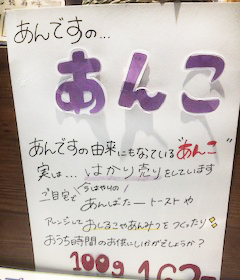 あんですの…
あんこ
あんですの由来にもなっている"あんこ"
実は…はかり売りをしています
ご自宅で今はやりの
あんばたートーストや
アレンジしておしるこやあんみつをつくったり
おうち時間のお供にいかがでしょうか?
100g